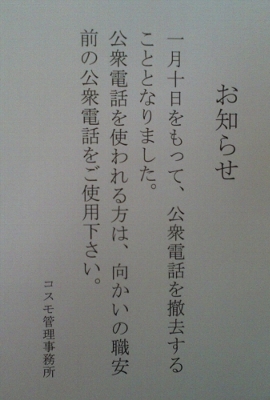 お知らせ
一月十日をもって、公衆電話を撤去する
こととなりました。
公衆電話を使われる方は、向かいの職安
前の公衆電話をご使用下さい。
コスモ管理事務所